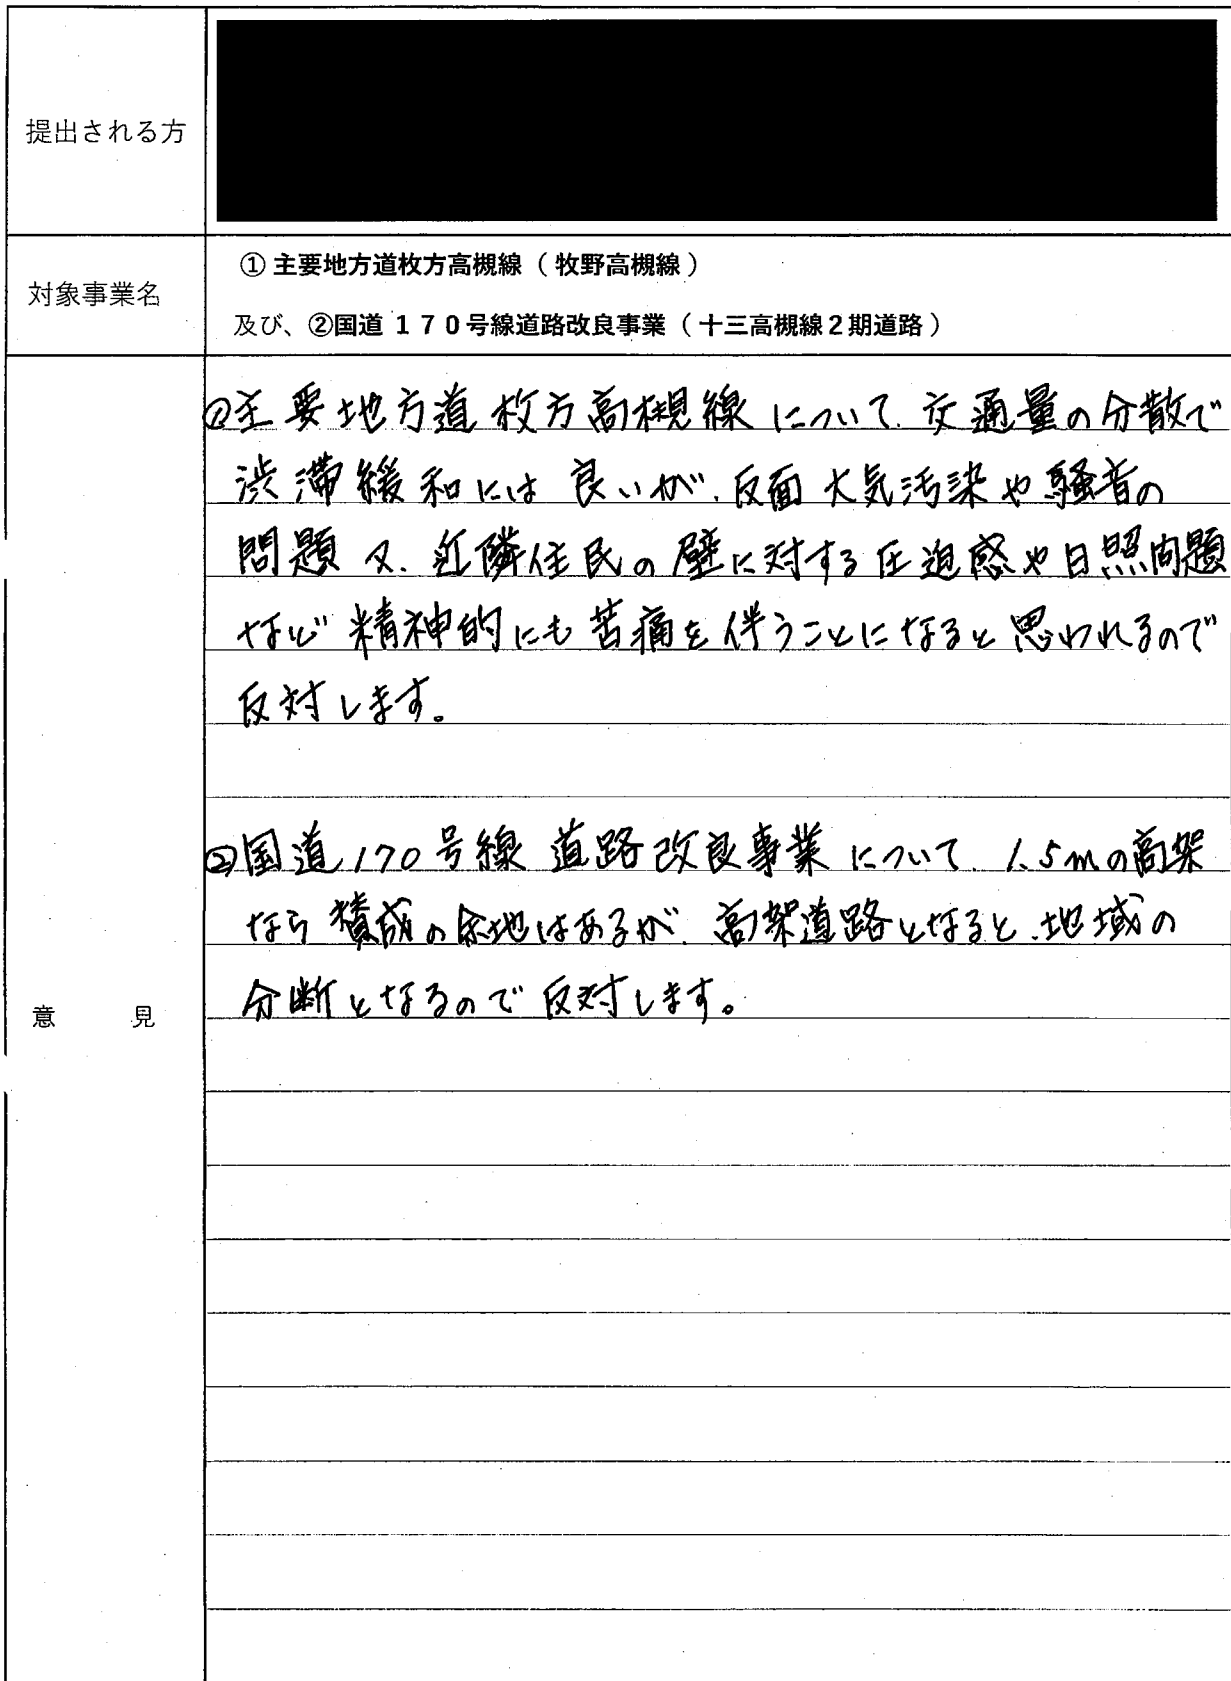 提出される方
対象事業名
① 主要地方道枚方高槻線（牧野高槻線）
及び、②国道１７０号線道路改良事業（十三高槻線２期道路）
意　　見
①主要地方道枚方高槻線について、交通量の分散で
渋滞緩和には良いが、反面大気汚染や騒音の
問題又、近隣住民の壁に対する圧迫感や日照問題
など精神的にも苦痛を伴うことになると思われるので
反対します。
②国道170号線道路改良事業について、1.5mの高架
なら賛成の余地はあるが、高架道路となると、地域の
分断となるので反対します。